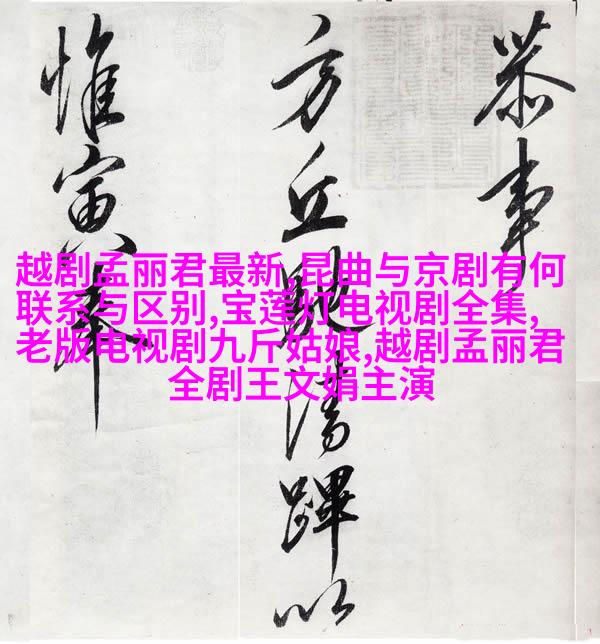 恭事
方丘清蹕以
惟寅奉
越剧孟丽君最新,昆曲与京剧有何
联系与区别,宝莲灯电视剧全集,
老版电视剧九斤姑娘,越剧孟丽君
全剧王文娟主演